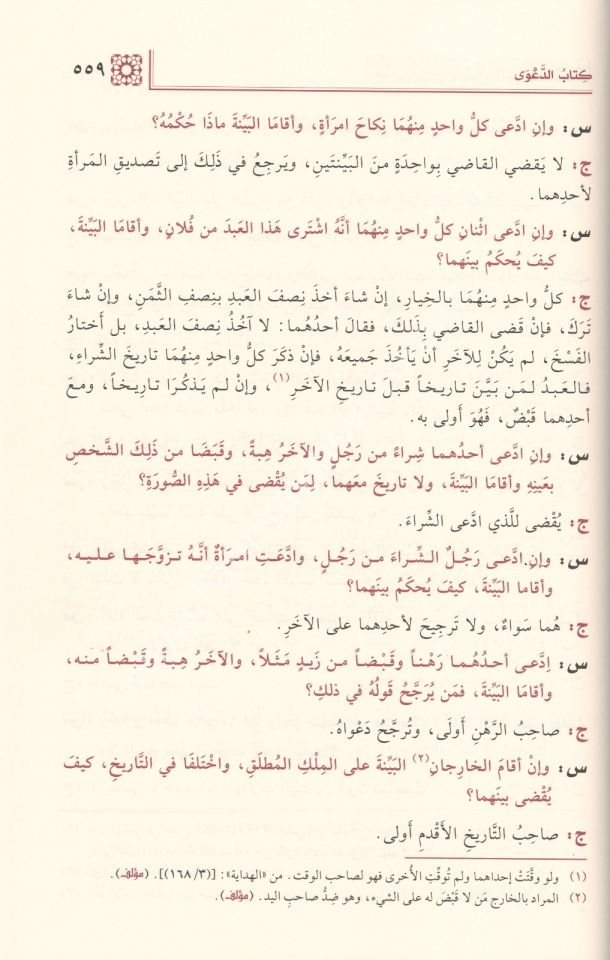 كِتابُ الدَّعْوَى ٥٥٩
س: وإنِ ادَّعى كلُّ واحدٍ منهُمَا نِكاحَ امرَأةٍ، وأقامَا البَيِّنةَ ماذَا حُكْمُهُ؟
ج: لا يَقضي القاضي بِواحِدَةٍ منَ البَيِّنتَينِ، ويَرجِعُ في ذَلِكَ إلى تَصديقِ المَرأةِ
لأحدِهما.
س: وإنِ ادَّعى اثْنانِ كلُّ واحدٍ منهُمَا أنَّهُ اشْتَرى هَذا العَبدَ من فُلانٍ، وأقامَا البَيِّنةَ،
كيفَ يُحكَمُ بينَهما؟
ج: كلُّ واحدٍ منهُمَا بالخِيارِ، إنْ شاءَ أخذَ نِصفَ العَبدِ بنِصفِ الثَّمَنِ، وإنْ شاءَ
تَرَكَ، فإنْ قَضى القاضي بِذَلكَ، فقالَ أحدُهُما: لا آخُذُ نِصفَ العَبدِ، بل أَختارُ
الفَسْخَ، لم يَكُنْ لِلآخَرِ أنْ يَأخُذَ جَميعَهُ، فإنْ ذكَرَ كلُّ واحدٍ منهُمَا تاريخَ الشِّراءِ،
فالعَبدُ لمَن بَيَّنَ تاريخاً قبلَ تاريخِ الآخَرِ(١)، وإنْ لم يَذكُرَا تاريخاً، ومعَ
أحدِهما قَبْضٌ، فَهُوَ أَولى به.
س: وإنِ ادَّعى أحدُهُما شِراءً من رَجُلٍ والآخَرُ هِبةً، وقَبَضَا من ذَلِكَ الشَّخصِ
بعَينِهِ وأقامَا البَيِّنةَ، ولا تاريخَ معَهما، لِمَن يُقْضى في هَذِهِ الصُّورَةِ؟
ج: يُقْضى للَّذي ادَّعى الشِّراءَ.
س: وإنِ ادَّعى رَجُلٌ الشِّراءَ من رَجُلٍ، وادَّعَتِ امرَأةٌ أنَّهُ تزوَّجَها عليه،
وأقاما البَيِّنةَ، كيفَ يُحكَمُ بينَهما؟
ج: هُما سَواءٌ، ولا تَرجيحَ لأحدِهما على الآخَرِ.
س: اِدَّعى أحدُهُما رَهْناً وقَبْضاً من زَيدٍ مَثَلاً، والآخَرُ هِبةً وقَبْضاً منه،
وأقامَا البَيِّنةَ، فمَن يُرَجَّحُ قَولُهُ في ذلِكَ؟
ج: صاحِبُ الرَّهْنِ أَولَى، وتُرجَّحُ دَعْواهُ.
س: وإنْ أقامَ الخارِجانِ(٢) البَيِّنةَ على المِلكِ المُطلَقِ، واخْتلَفَا في التَّاريخِ، كيفَ
يُقْضى بينَهما؟
ج: صاحِبُ التَّاريخِ الأقْدمِ أَولى.
(١) ولو وقَّتَتْ إحداهما ولم تُوقِّتِ الأُخرى فهو لصاحب الوقت. من «الهداية»: [(٣/ ١٦٨)]. (مؤلف).
(٢) المراد بالخارج مَن لا قَبْضَ له على الشيء، وهو ضِدُّ صاحبِ اليد. (مؤلف).